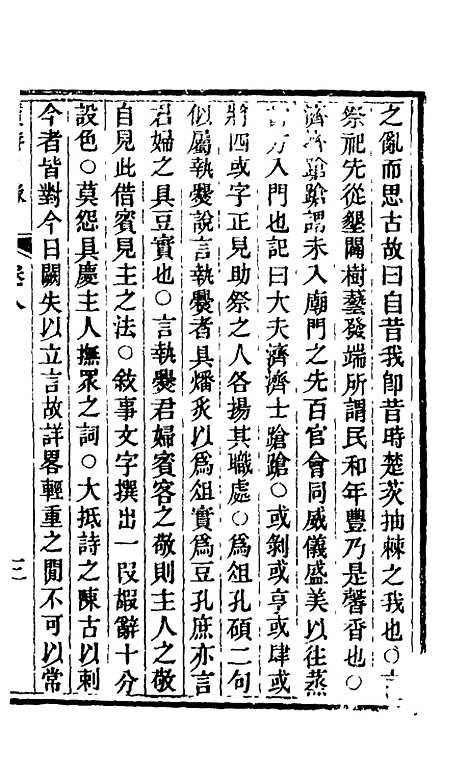 之亂而思古故曰自昔我卽昔時楚茨抽棘之我也○言
祭祀先從墾闢樹藝發端所謂民和年豐乃是馨香也○
濟濟蹌蹌謂未入廟門之先百官會同威儀盛美以往蒸
嘗方入門也記曰大夫濟濟士蹌蹌○或剝或亨或肆或
將四或字正見助祭之人各揚其職處○爲俎孔碩二句
似屬執爨說言執爨者具燔炙以爲俎實爲豆孔庶亦言
君婦之具豆實也○言執爨君婦賓客之敬則主人之敬
自見此借賓見主之法○敘事文字撰出一段嘏辭十分
設色○莫怨具慶主人撫眾之詞○大抵詩之陳古以刺
今者皆對今日闕失以立言故詳畧輕重之閒不可以常
卷八